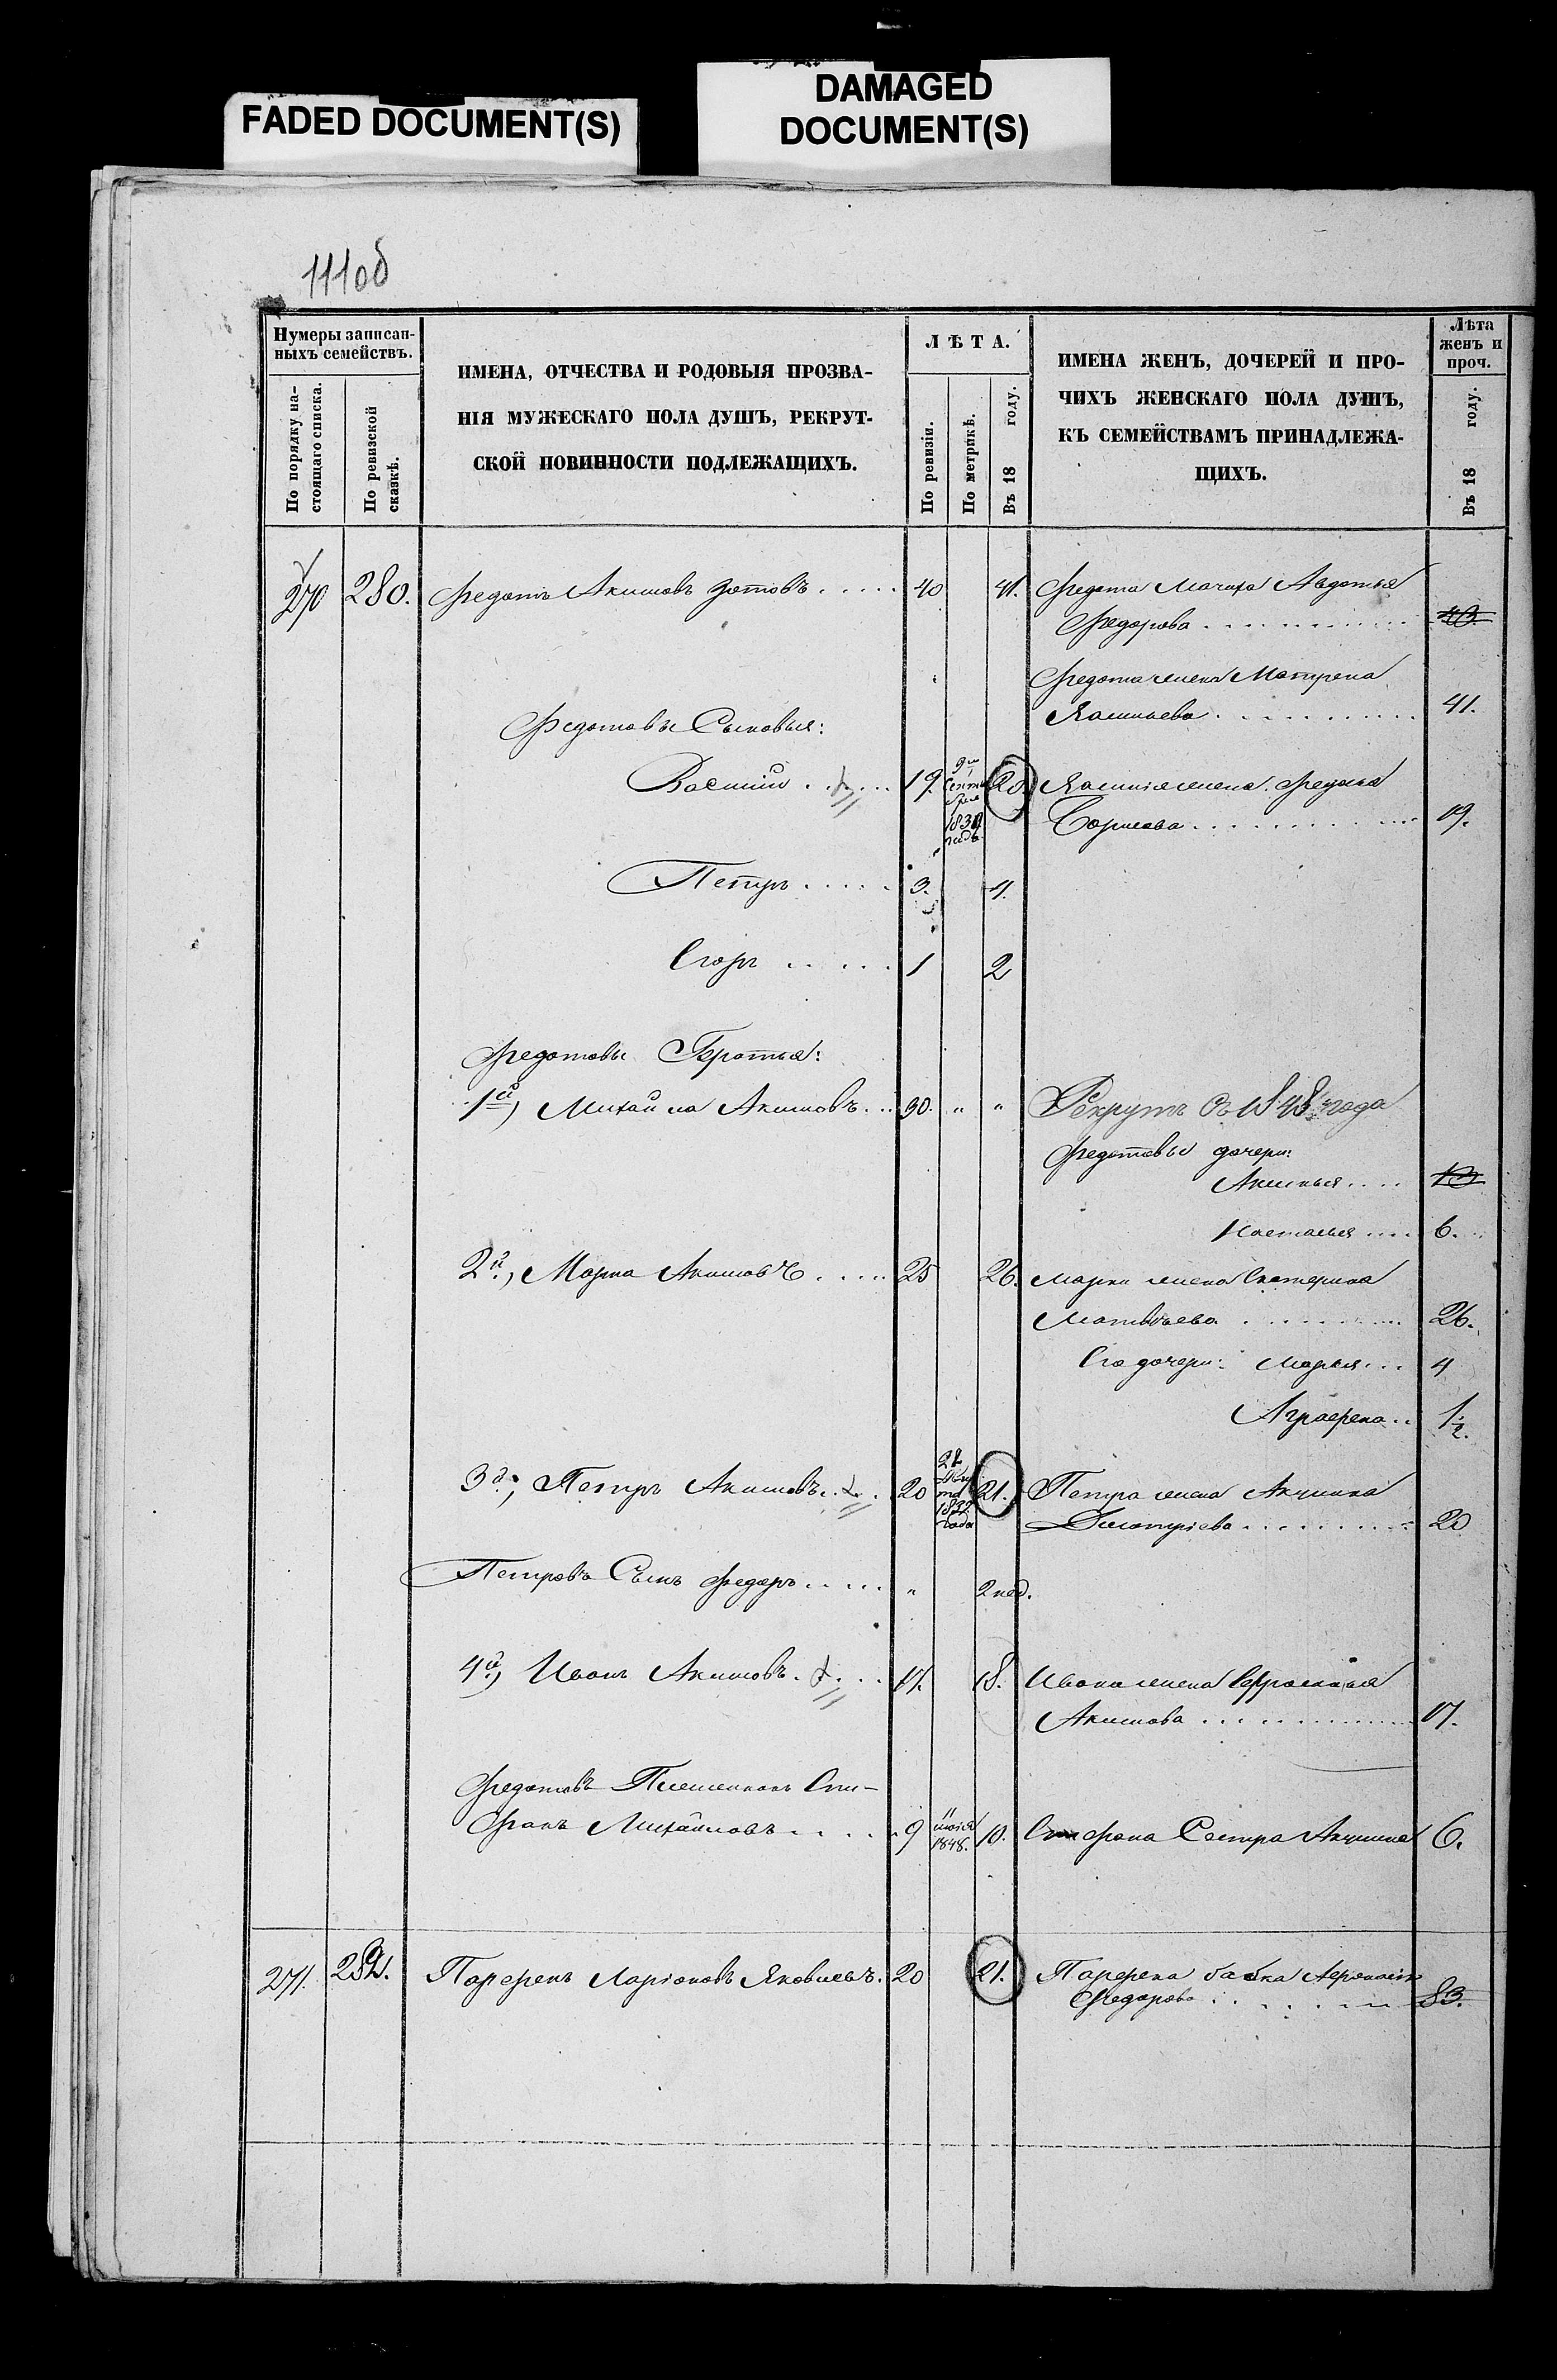 FADED DOCUMENT(S)
DAMAGED
DOCUMENT(S)
111об
Нумеры записан-
ныхъ семействъ.
По порядку на-
стоящаго списка.
По ревизской
сказкѣ.
ИМЕНА, ОТЧЕСТВА И РОДОВЫЯ ПРОЗВА-
НІЯ МУЖЕСКАГО ПОЛА ДУШЪ, РЕКРУТ-
СКОЙ ПОВИННОСТИ ПОДЛЕЖАЩИХЪ.
ЛѢТА.
По ревизіи.
По метрикѣ.
Въ 18 году.
ИМЕНА ЖЕНЪ, ДОЧЕРЕЙ И ПРО-
ЧИХЪ ЖЕНСКАГО ПОЛА ДУШЪ,
КЪ СЕМЕЙСТВАМЪ ПРИНАДЛЕЖА-
ЩИХЪ.
Лѣта
женъ и
проч.
Въ 18 году.
270 280. Федотъ Акимовъ Зотовъ ..... 40 41. Федота Мачиха Авдотья
Федорова ..... 43.
Федота жена Матрена
Федотовы Сыновья: ..... 41.
Василій ..... 19. 20. Василія жена Федосья
Борисова ..... 19.
Петръ ..... 3. 4.
Егоръ ..... 1 2
Федотовы Братья:
1й, Михайла Акимовъ ... 30. " " Рекрутъ съ 1848 года
Федотовы дочери:
Аксинья .... 13
Настасья .... 6.
2й, Марка Акимовъ ..... 25 26. Марки жена Катерина
Матвѣева ..... 26.
Его дочери: Марья ... 4
Аграфена .. 1½.
3й, Петръ Акимовъ ... 20 21. Петра жена Акулина
Дмитріева ..... 20
Петровъ Сынъ Федоръ ..... " 2 нед.
4й, Иванъ Акимовъ ... 17. 18. Ивана жена Ефросинья
Акимова ..... 17.
Федотовъ Племянникъ Спи-
ридонъ Михайловъ ..... 9 1848. 10. Сестра Акулина 6.
271. 282. Парфенъ Ларіоновъ Яковлевъ. 20 21. Парфена бабка
Федорова ..... 83.